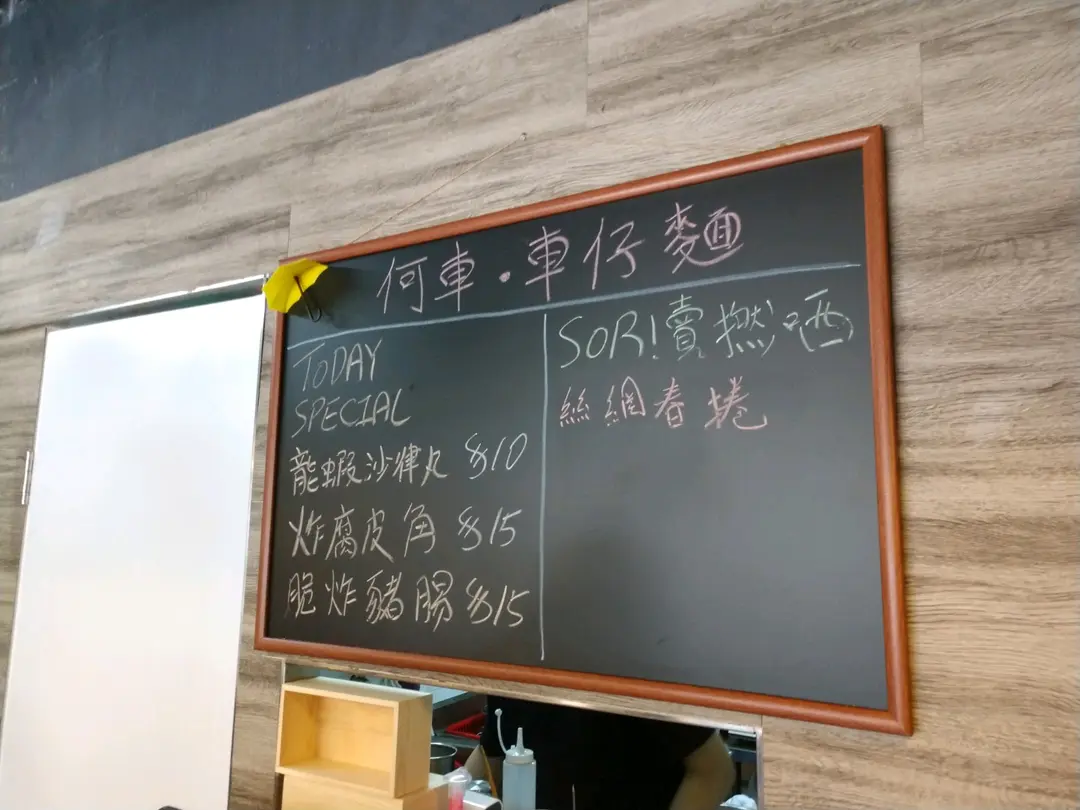 何車·車仔麵
TODAY
SPECIAL
龍蝦沙律丸 $10
炸腐皮角 $15
脆炸豬腸 $15
SOR!賣撚晒
絲網春捲